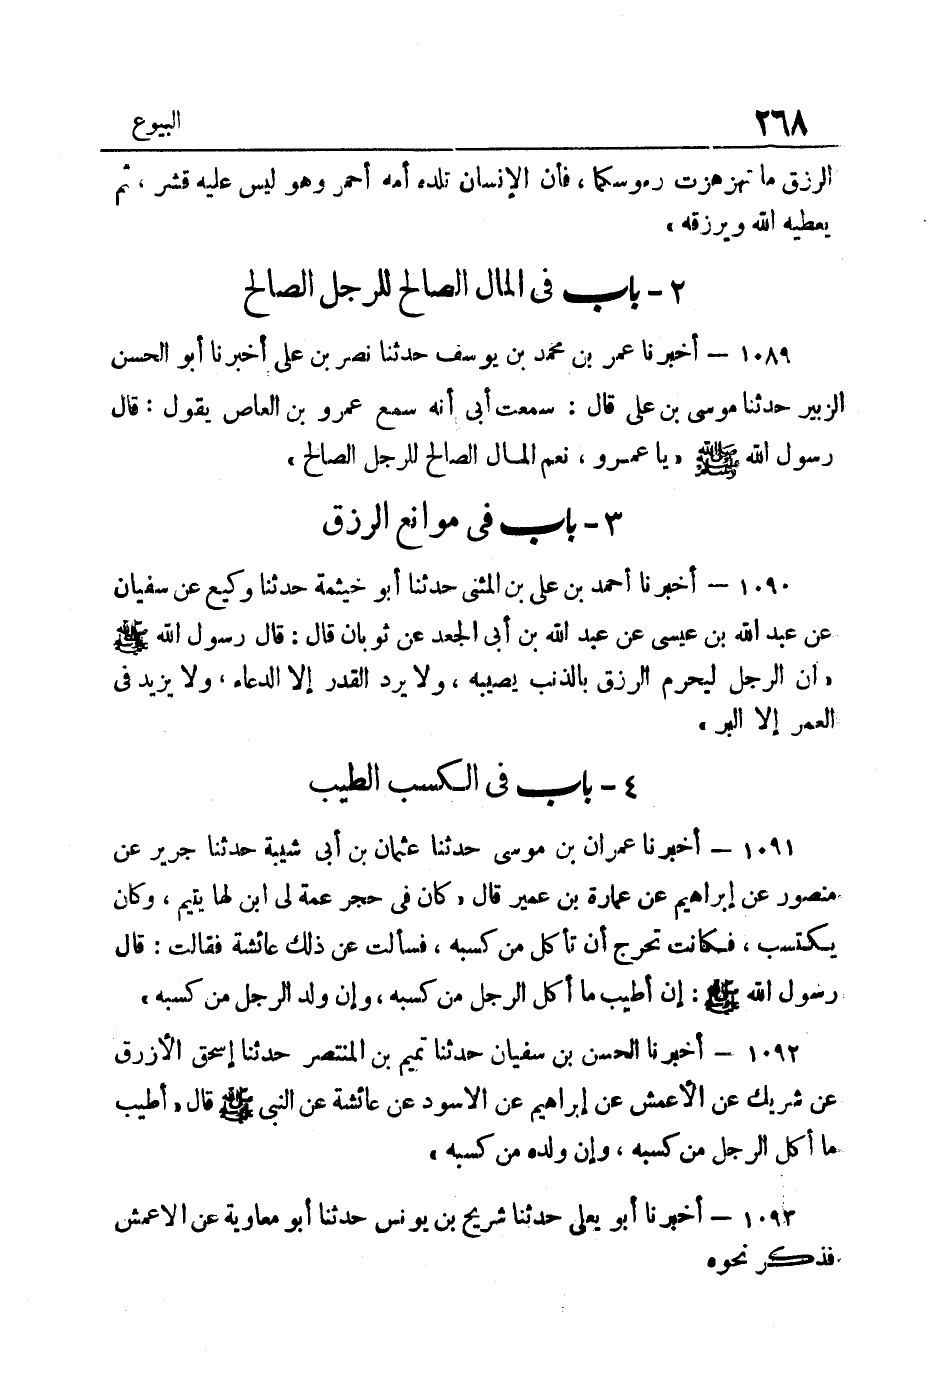 ٢٦٨ البيوع
الرزق ما تهزهزت رءوسكما ، فأن الإنسان تلده أمه أحمر وهو ليس عليه قشر ، ثم
يعطيه الله ويرزقه »
٢ - باب فى المال الصالح للرجل الصالح
١٠٨٩ – أخبرنا عمر بن محمد بن يوسف حدثنا نصر بن على أخبرنا أبو الحسن
الزبير حدثنا موسى بن على قال : سمعت أبى أنه سمع عمرو بن العاص يقول : قال
رسول الله ﷺ « يا عمرو ، نعم المال الصالح للرجل الصالح »
٣ - باب فى موانع الرزق
١٠٩٠ – أخبرنا أحمد بن على بن المثنى حدثنا أبو خيثمة حدثنا وكيع عن سفيان
عن عبد الله بن عيسى عن عبد الله بن أبى الجعد عن ثوبان قال : قال رسول الله ﷺ
« ان الرجل ليحرم الرزق بالذنب يصيبه ، ولا يرد القدر إلا الدعاء ، ولا يزيد فى
العمر إلا البر »
٤ - باب فى الكسب الطيب
١٠٩١ – أخبرنا عمران بن موسى حدثنا عثمان بن أبى شيبة حدثنا جرير عن
منصور عن إبراهيم عن عمارة بن عمير قال « كان فى حجر عمة لى ابن لها يتيم ، وكان
يكتسب ، فكانت تحرج أن تأكل من كسبه ، فسألت عن ذلك عائشة فقالت : قال
رسول الله ﷺ : إن أطيب ما أكل الرجل من كسبه ، وإن ولد الرجل من كسبه »
١٠٩٢ – أخبرنا الحسن بن سفيان حدثنا تميم بن المنتصر حدثنا إسحق الأزرق
عن شريك عن الأعمش عن إبراهيم عن الاسود عن عائشة عن النبى ﷺ قال « أطيب
ما أكل الرجل من كسبه ، وإن ولده من كسبه »
١٠٩٣ – أخبرنا أبو يعلى حدثنا شريح بن يونس حدثنا أبو معاوية عن الاعمش
فذكر نحوه